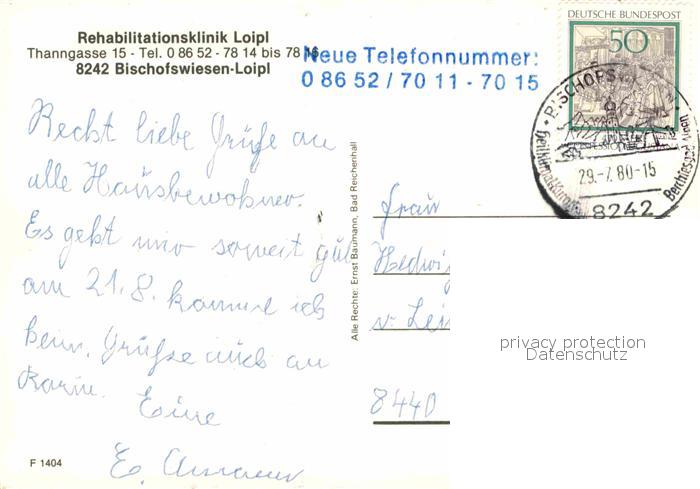 Rehabilitationsklinik Loipl
Thanngasse 15 - Tel. 0 86 52 - 78 14 bis 78 16
8242 Bischofswiesen-Loipl
Neue Telefonnummer:
0 86 52 / 70 11 - 70 15
DEUTSCHE BUNDESPOST
50
29.-7.80-15
8242
Recht liebe Grüße an
alle Hausbewohner.
Es geht mir soweit gut
am 21.8. komme ich
heim. Grüße auch an
Karin.
Eure
E.
Alle Rechte: Ernst Baumann, Bad Reichenhall
Frau
Hedwig
v.
8440
privacy protection
Datenschutz
F 1404